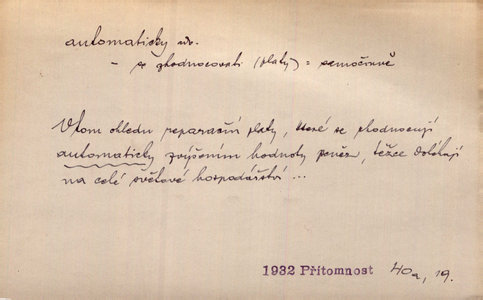 automaticky adv.
– se zhodnocovati (platy) = samočinně
V tom ohledu reparační platy, které se zhodnocují
automaticky zvýšením hodnoty peněz, těžce doléhají
na celé světové hospodářství ...
1932 Přítomnost 40a, 19.